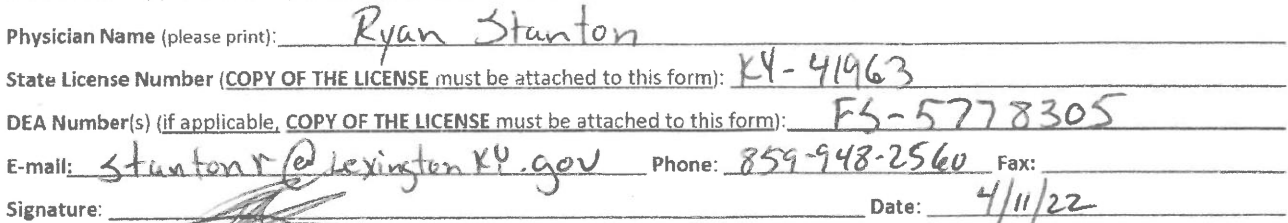 Physician Name (please print): Ryan Stanton
State License Number (COPY OF THE LICENSE must be attached to this form): KY-41963
DEA Number(s) (if applicable, COPY OF THE LICENSE must be attached to this form): FS-5778305
E-mail: stantonr@LexingtonKY.gov Phone: 859-948-2560 Fax:
Signature: Date: 4/11/22